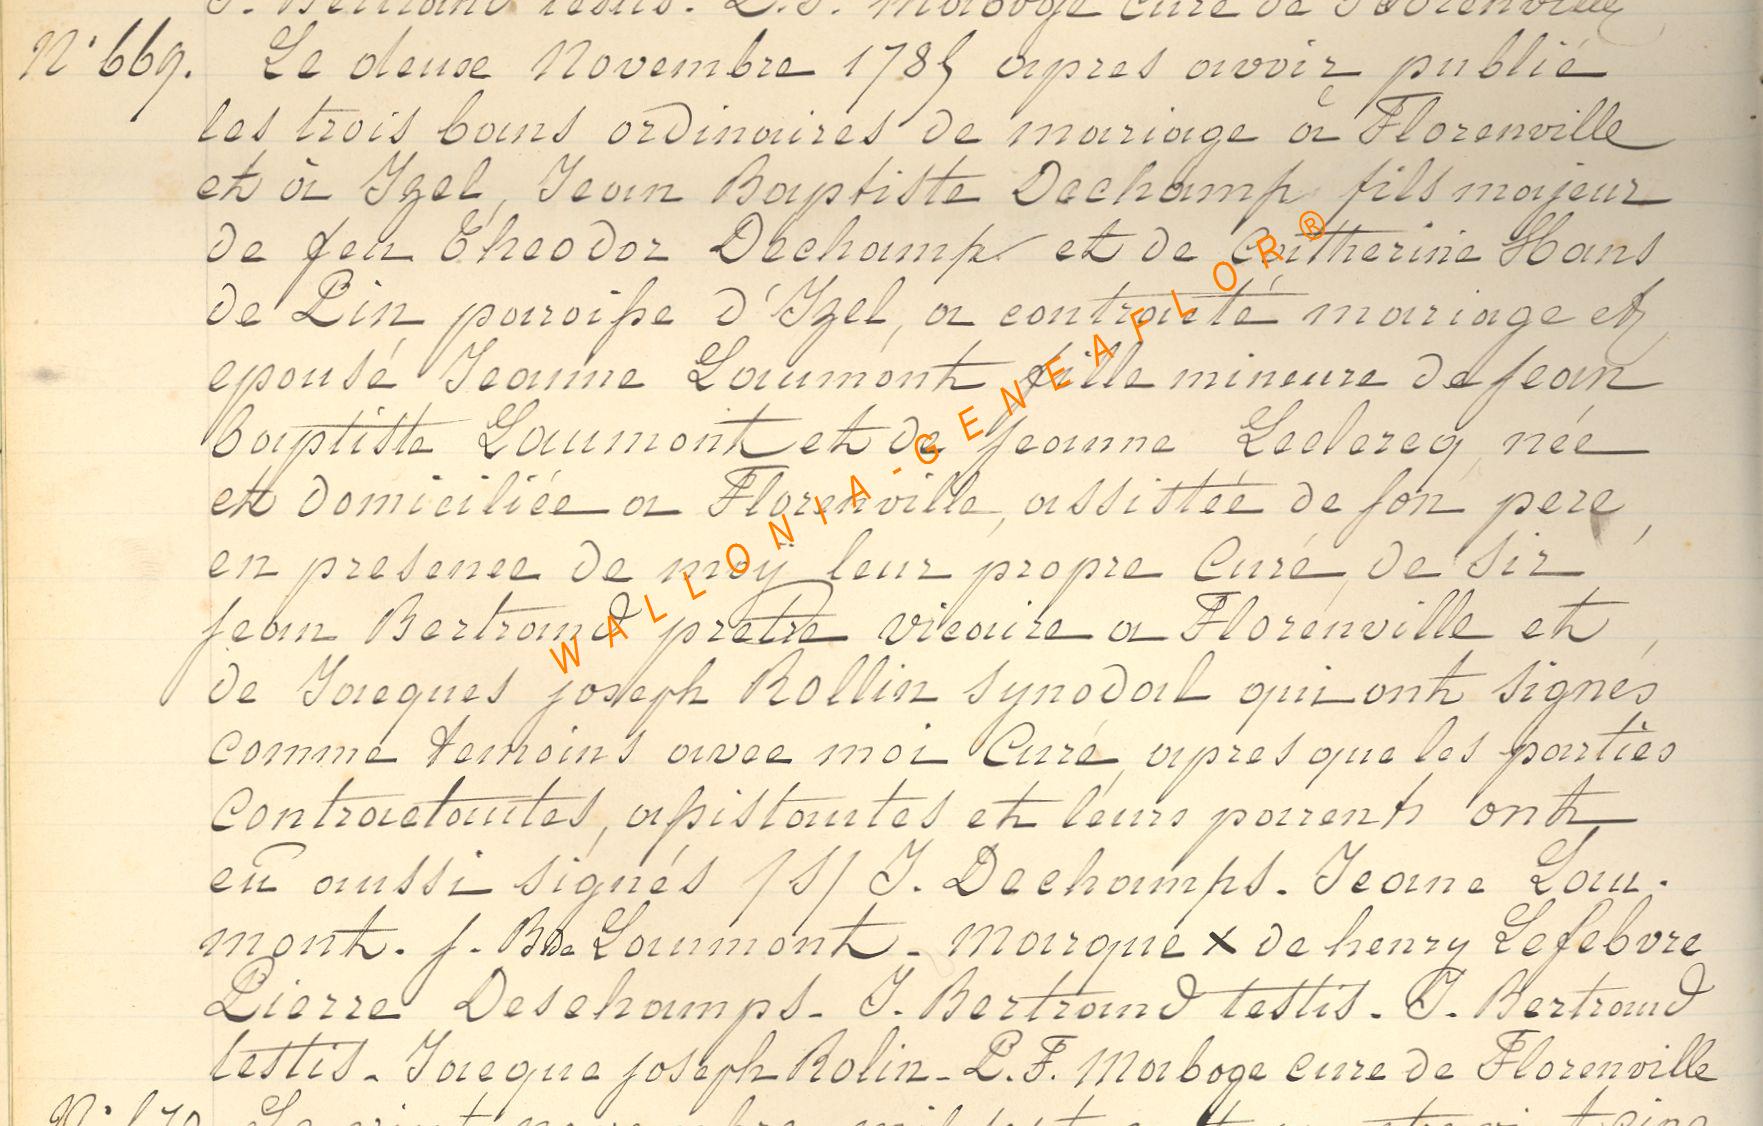 J. Bertrand testis. L.F. Maboge curé de Florenville
N° 669. Le deuxe Novembre 1785 apres avoir publié
les trois bans ordinaires de mariage à Florenville
et à Izel, Jean Baptiste Dechamp fils majeur
de feu Théodor Dechamp et de Cathérine Hans
de Pin paroisse d'Izel, a contracté mariage et
epousé Jeanne Laumont fille mineure de Jean
baptiste Laumont et de Jeanne Leclercq née
et domiciliée a Florenville, assistée de son pere,
en presence de moÿ leur propre Curé, de Sir
Jean Bertrand pretre vicaire a Florenville et,
de Jacques joseph Rollin synodal qui ont signés
comme temoins avec moi Curé, apres que les parties
contractantes, assistantes et leurs parents ont
eu aussi signés /S/ J. Dechamps. Jeane Lau-
mont. J. Bte Laumont - marque x de henry Lefebvre
Pierre Deschamps. J. Bertrand testis. J. Bertrand
testis. Jacque joseph Rolin. L.F. Maboge cure de Florenville
N° 670 Le vingt novembre mil sept cent quatre vingt cinq
WALLONIA-GENEAFLOR®